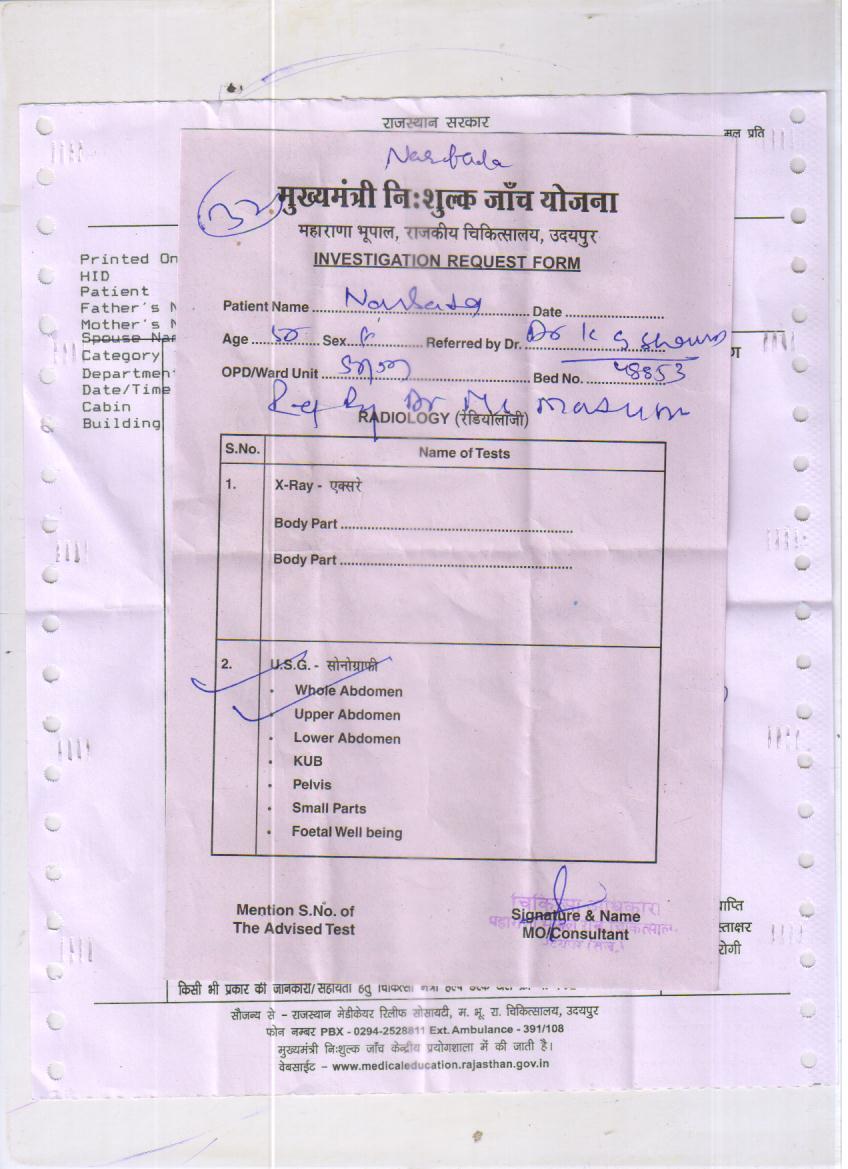 राजस्थान सरकार
मूल प्रति
Narbada
32
मुख्यमंत्री निःशुल्क जाँच योजना
महाराणा भूपाल, राजकीय चिकित्सालय, उदयपुर
INVESTIGATION REQUEST FORM
Printed On
HID
Patient
Father's N
Mother's N
Spouse Nam
Category
Department
Date/Time
Cabin
Building
Patient Name Narbada Date
Age 50 Sex F Referred by Dr. Dr K G Sharma
OPD/Ward Unit Bed No. 48853
Ref By Dr
RADIOLOGY (रेडियोलॉजी)
S.No. Name of Tests
1. X-Ray - एक्सरे
Body Part
Body Part
2. U.S.G. - सोनोग्राफी
• Whole Abdomen
• Upper Abdomen
• Lower Abdomen
• KUB
• Pelvis
• Small Parts
• Foetal Well being
Mention S.No. of
The Advised Test
Signature & Name
MO/Consultant
किसी भी प्रकार की जानकारी/सहायता हेतु
सौजन्य से – राजस्थान मेडीकेयर रिलीफ सोसायटी, म. भू. रा. चिकित्सालय, उदयपुर
फोन नम्बर PBX - 0294-2528811 Ext. Ambulance - 391/108
मुख्यमंत्री निःशुल्क जाँच केन्द्रीय प्रयोगशाला में की जाती है।
वेबसाईट – www.medicaleducation.rajasthan.gov.in